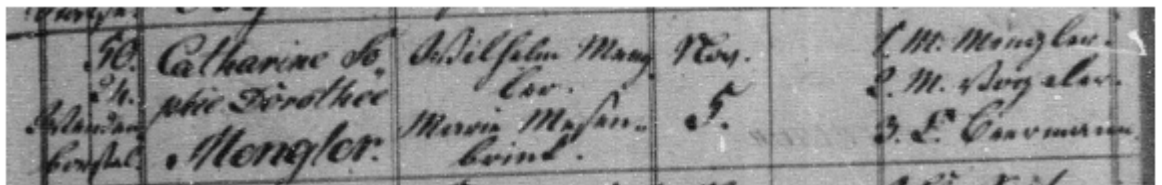 50.
24.
Catharine So-
phie Dorothee
Mengler.
Wilhelm Meng
ler.
Marie Mesen-
brink.
Nov.
5.
1. M. Mengler.
2. M. Vogeler.
3. E. Beermann.